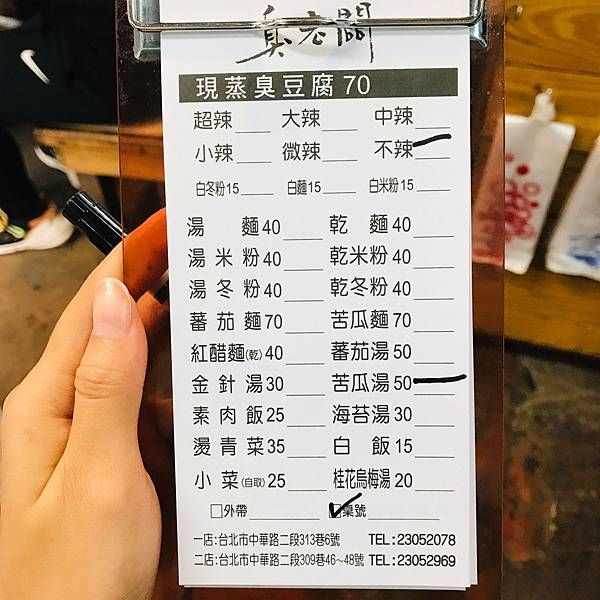 臭老闆
現蒸臭豆腐 70
超辣___ 大辣___ 中辣___
小辣___ 微辣___ 不辣___
白冬粉15___ 白麵15___ 白米粉15___
湯麵40___ 乾麵40___
湯米粉40___ 乾米粉40___
湯冬粉40___ 乾冬粉40___
蕃茄麵70___ 苦瓜麵70___
紅醋麵(乾)40___ 蕃茄湯50___
金針湯30___ 苦瓜湯50___
素肉飯25___ 海苔湯30___
燙青菜35___ 白飯15___
小菜(自取)25___ 桂花烏梅湯20___
□外帶 ☑桌號___
一店:台北市中華路二段313巷6號 TEL:23052078
二店:台北市中華路二段309巷46~48號 TEL:23052969